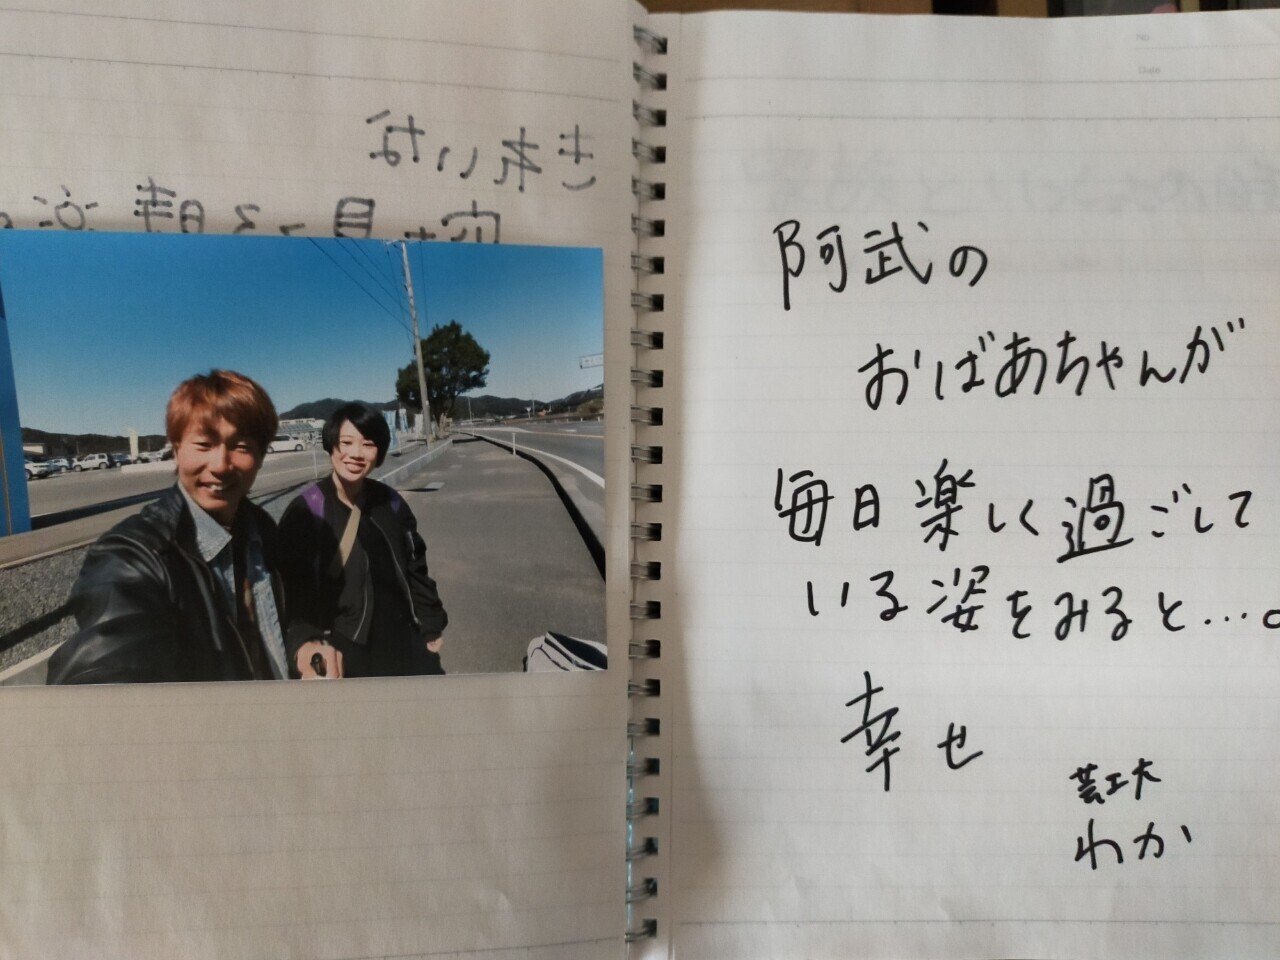 きれいな
阿武の
おばあちゃんが
毎日楽しく過ごして
いる姿をみると…。
幸せ
芸工大
わか
No.
Date